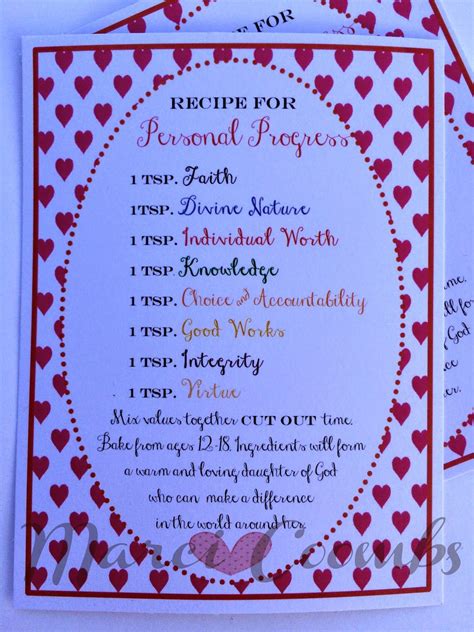 RECIPE FOR
RECIPE FOR
Personal Progress
1 TSP. Faith
1TSP. Divine Nature
1TSP. Individual Worth
1 TSP. Knowledge
1TSP. Choice and Accountability
1TSP. Good Works
1 TSP. Integrity
1 TSP. Virtue
Mix values together CUT OUT time.
Bake from ages 12-18. Ingredients will form
a warm and loving daughter of God
who can make a difference
in the world around her.
Marci Coombs
time.
will form
God